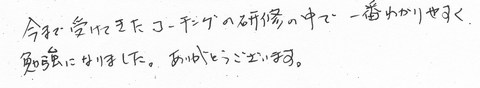 今まで受けてきたコーチングの研修の中で一番わかりやすく、
勉強になりました。ありがとうございます。